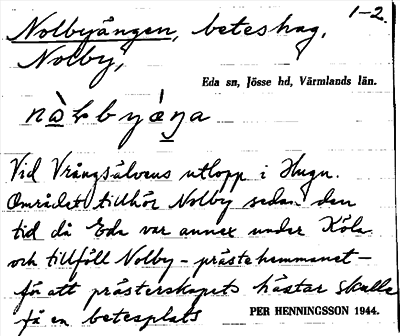 Nolbyängen, beteshag, 1-2.
Nolby,
Eda sn, Jösse hd, Värmlands län.
Vid Vrångsälvens utlopp i Hugn.
Området tillhör Nolby sedan den
tid då Eda var annex under Köla
och tillföll Nolby - prästehemmanet -
för att prästerskapets hästar skulle
få en betesplats
PER HENNINGSSON 1944.